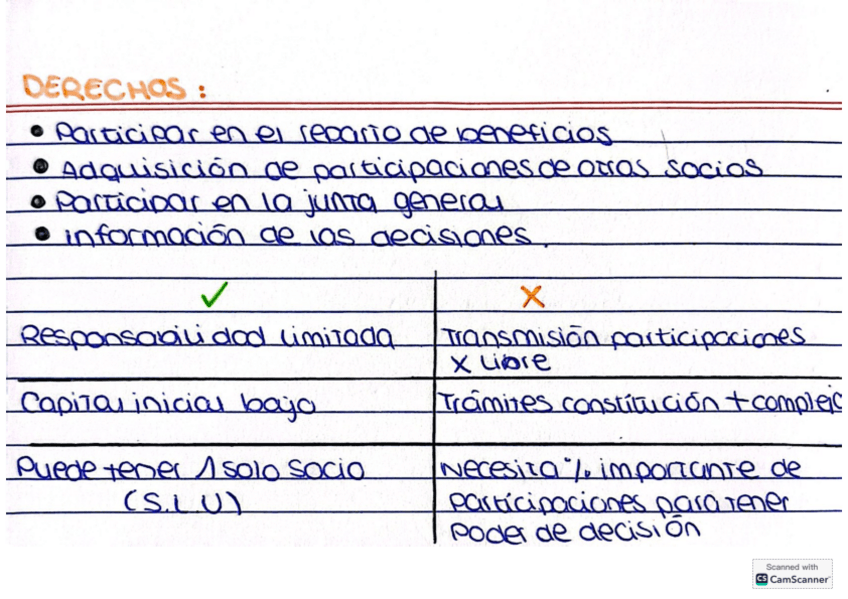 DERECHOS:
• Participar en el reparto de beneficios
• Adquisición de participaciones de otros socios
• Participar en la junta general
• información de las decisiones.
✓ X
Responsabilidad limitada
Transmisión participaciones
X Libre
Capital inicial bajo
Trámites constitución + complejo
Puede tener 1 solo socio
(S.L.U)
Necesita % importante de
participaciones para tener
poder de decisión
Scanned with
CS CamScanner